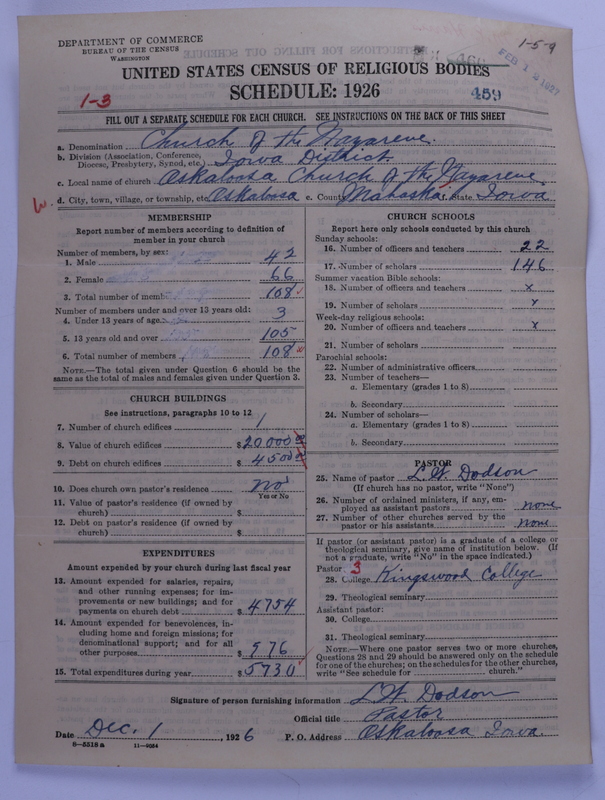 DEPARTMENT OF COMMERCE
BUREAU OF THE CENSUS
WASHINGTON
1-5-9
FEB 12 1927
UNITED STATES CENSUS OF RELIGIOUS BODIES
SCHEDULE: 1926
1-3
459
FILL OUT A SEPARATE SCHEDULE FOR EACH CHURCH. SEE INSTRUCTIONS ON THE BACK OF THIS SHEET
a. Denomination Church of the Nazarene.
b. Division (Association, Conference, Diocese, Presbytery, Synod, etc.) Iowa District
c. Local name of church Oskaloosa Church of the Nazarene
W. d. City, town, village, or township, etc. Oskaloosa e. County Mahaska f. State Iowa
MEMBERSHIP
Report number of members according to definition of
member in your church
Number of members, by sex:
1. Male 42
2. Female 66
3. Total number of members 108
Number of members under and over 13 years old:
4. Under 13 years of age 3
5. 13 years old and over 105
6. Total number of members 108
NOTE.—The total given under Question 6 should be
same as the total of males and females given under Question 3.
CHURCH BUILDINGS
See instructions, paragraphs 10 to 12
7. Number of church edifices 1
8. Value of church edifices $20000 00
9. Debt on church edifices $4500 00
10. Does church own pastor's residence No
Yes or No
11. Value of pastor's residence (if owned by
church) $
12. Debt on pastor's residence (if owned by
church) $
EXPENDITURES
Amount expended by your church during last fiscal year
13. Amount expended for salaries, repairs,
and other running expenses; for im-
provements or new buildings; and for
payments on church debt $4754
14. Amount expended for benevolences, in-
cluding home and foreign missions; for
denominational support; and for all
other purposes $976
15. Total expenditures during year $5730
CHURCH SCHOOLS
Report here only schools conducted by this church
Sunday schools:
16. Number of officers and teachers 22
17. Number of scholars 146
Summer vacation Bible schools:
18. Number of officers and teachers x
19. Number of scholars x
Week-day religious schools:
20. Number of officers and teachers x
21. Number of scholars
Parochial schools:
22. Number of administrative officers
23. Number of teachers—
a. Elementary (grades 1 to 8)
b. Secondary
24. Number of scholars—
a. Elementary (grades 1 to 8)
b. Secondary
PASTOR
25. Name of pastor L. W. Dodson
(If church has no pastor, write "None")
26. Number of ordained ministers, if any, em-
ployed as assistant pastors none
27. Number of other churches served by the
pastor or his assistants none
If pastor (or assistant pastor) is a graduate of a college or
theological seminary, give name of institution below. (If
not a graduate, write "No" in the space indicated.)
Pastor: 3
28. College Kingswood College
29. Theological seminary
Assistant pastor:
30. College
31. Theological seminary
NOTE.—Where one pastor serves two or more churches,
Questions 28 and 29 should be answered only on the schedule
for one of the churches; on the schedules for the other churches,
write "See schedule for church."
Signature of person furnishing information L. W. Dodson
Official title Pastor
Date Dec. 1, 1926 P. O. Address Oskaloosa Iowa.
8-5518a 11-9034